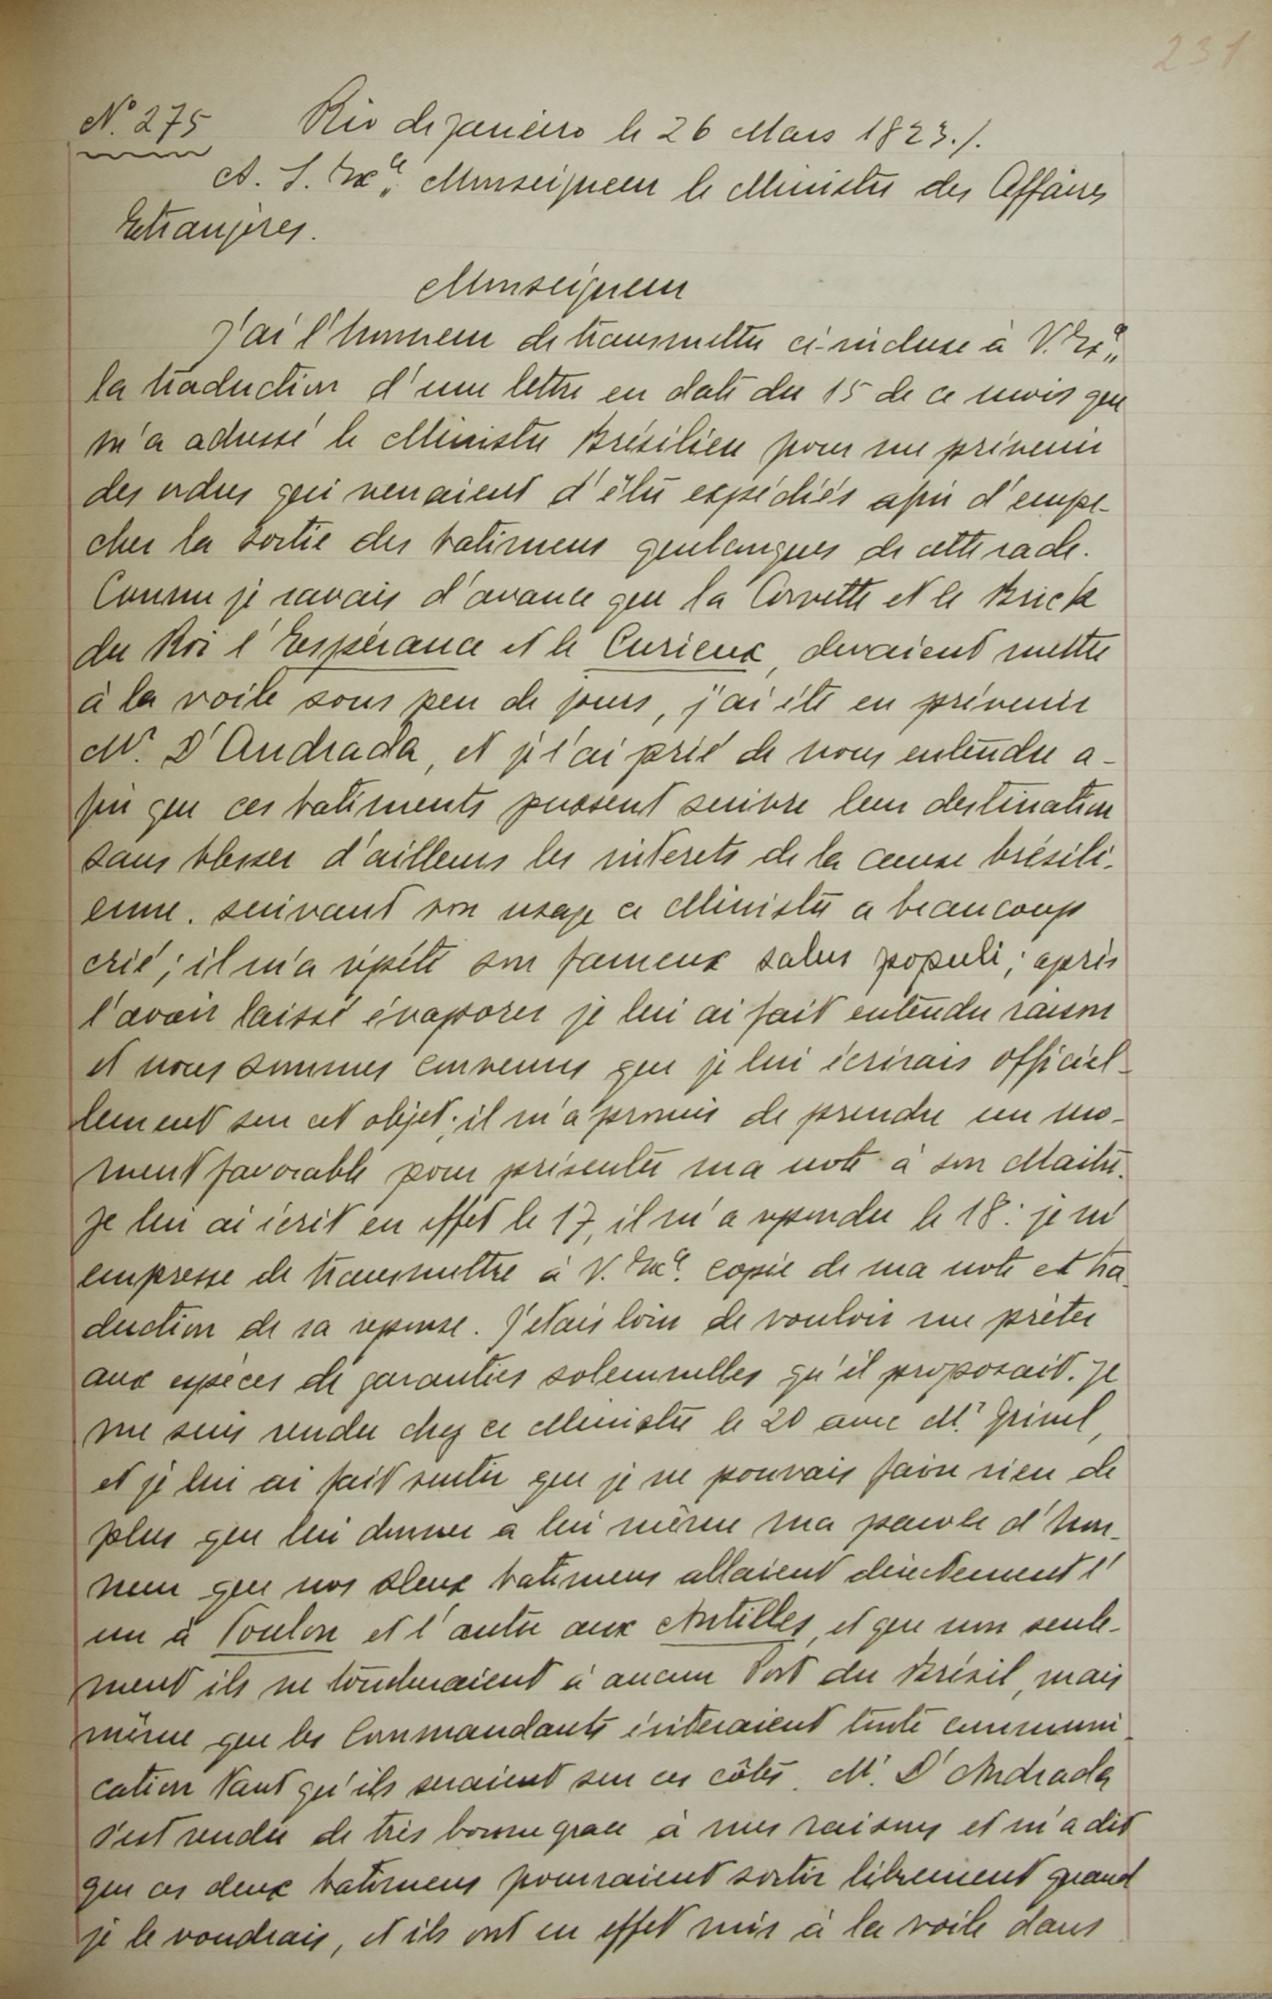 231
N.º 275 Rio de janeiro le 26 Mars 1823./.
A. S. Exᶜᵉ. Monseigneur le Ministre des Affaires
Etrangères.
Monseigneur
J'ai l'honneur de transmettre ci-incluse à V. Exᶜᵉ.
la traduction d'une lettre en date du 15 de ce mois que
m'a adressé le Ministre Brésilien pour me prévenir
des ordres qui venaient d'être expédiés afin d'empe-
cher la sortie des batimens quelconques de cette rade.
Comme je savais d'avance que la Corvette et le Brick
du Roi l'Espérance et le Curieux, devaient mettre
à la voile sous peu de jours, j'ai été en prévenir
Mʳ. D'Andrada, et je l'ai prié de nous entendre a-
fin que ces batiments pussent suivre leur destination
sans blesser d'ailleurs les interets de la cause brésili-
enne. suivant son usage ce Ministre a beaucoup
crié; il m'a répété son fameux salus populi; après
l'avoir laissé évaporer je lui ai fait entendre raison
et nous sommes convenus que je lui écrirais officiel-
lement sur cet objet; il m'a promis de prendre un mo-
ment favorable pour présenter ma note à son Maitre.
Je lui ai écrit en effet le 17, il m'a repondu le 18: je m'
empresse de transmettre à V. Exᶜᵉ. copie de ma note et tra-
duction de sa reponse. J'etais loin de vouloir me prèter
aux espèces de garanties solemnelles qu'il proposait. Je
me suis rendu chez ce Ministre le 20 avec Mʳ. Grivel,
et je lui ai fait sentir que je ne pouvais faire rien de
plus que lui donner a lui même ma parole d'hon-
neur que nos deux batimens allaient directement l'
un à Toulon et l'autre aux Antilles, et que non seule-
ment ils ne toucheraient à aucun Port du Brésil, mais
même que les Commandants éviteraient toute communi-
cation tant qu'ils seraient sur ces côtes. Mʳ. D'Andrada
s'est rendu de très bonne grace à mes raisons et m'a dit
que ces deux batimens pourraient sortir librement quand
je le voudrais, et ils ont en effet mis à la voile dans